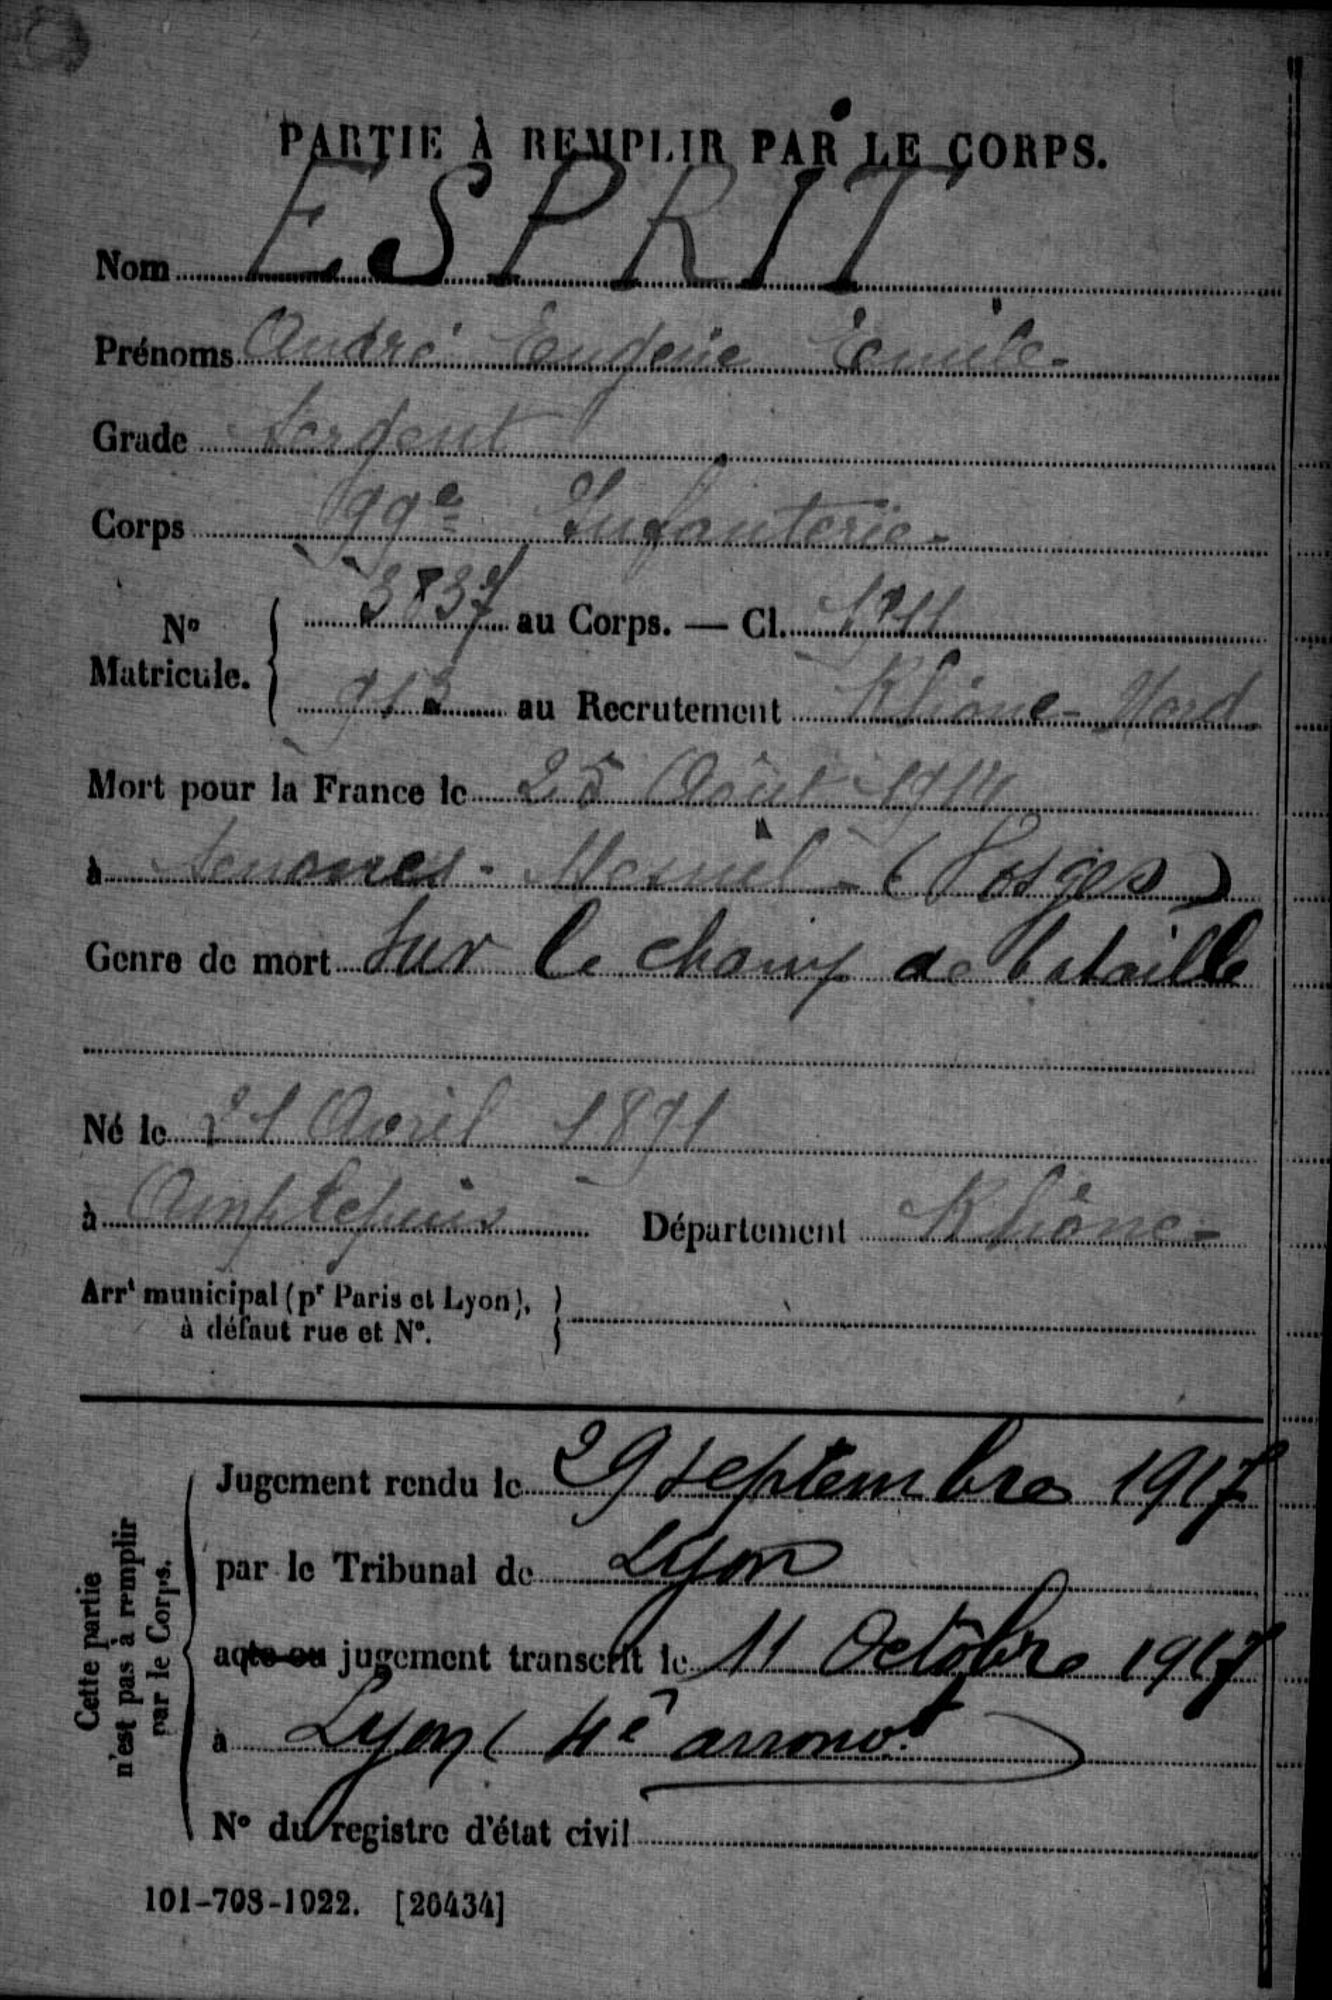 PARTIE À REMPLIR PAR LE CORPS.
Nom ESPRIT
Prénoms André Eugène Emile
Grade Sergent
Corps 99e Infanterie
N° Matricule. 3837 au Corps. — Cl. 1911
913 au Recrutement Rhône-Nord
Mort pour la France le 25 Août 1914
à Ménil (Vosges)
Genre de mort Sur le champ de bataille
Né le 21 Avril 1891
à Amplepuis Département Rhône
Arrt municipal (pr Paris et Lyon), à défaut rue et N°.
Cette partie n'est pas à remplir par le Corps.
Jugement rendu le 29 septembre 1917
par le Tribunal de Lyon
acte ou jugement transcrit le 11 Octobre 1917
à Lyon (4e arrondt
N° du registre d'état civil
101-708-1922. [26434]